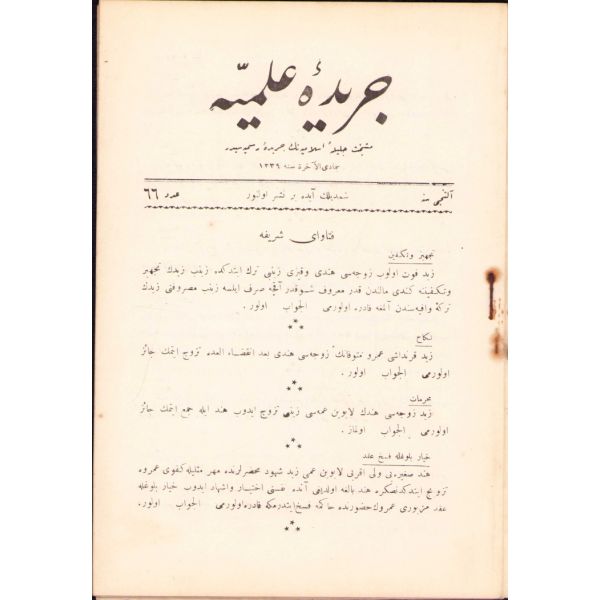 جريدهٔ علميّه
مشيخت جليلهٔ اسلاميه‌نك جريدهٔ رسميه‌سيدر
جمادى الآخرة سنه ١٣٣٩
آلتنجى سنه
شمديلك آيده بر نشر اولنور
عدد ٦٦
فتاواى شريفه
تجهيز وتكفين
زيد فوت اولوب زوجه‌سى هندى وقيزى زينبى ترك ايتدكده زينب زيدك تجهيز
وتكفيننه كندى مالندن قدر معروف شو قدر آقچه صرف ايلسه زينب مصروفنى زيدك
تركهٔ وافيه‌سندن آلمغه قادره اولورمى الجواب اولور .
نكاح
زيد قرنداشى عمرو متوفانك زوجه‌سى هندى بعد انقضاء العده تزوج ايتمك جائز
اولورمى الجواب اولور .
محرمات
زيد زوجه‌سى هندك لابوين عمه‌سى زينبى تزوج ايدوب هند ايله جمع ايتمك جائز
اولورمى الجواب اولماز .
خيار بلوغله فسخ عقد
هند صغيره‌نى ولى اقربى لابوين عمى زيد شهود محضرلرنده مهر مثليله كفوى عمروه
تزويج ايتدكدنصكره هند بالغه اولديغى آنده نفسنى اختيار واشهاد ايدوب خيار بلوغله
عقد مزبورى عمروك حضورنده حاكمه فسخ ايتدرمكه قادره اولورمى الجواب اولور.